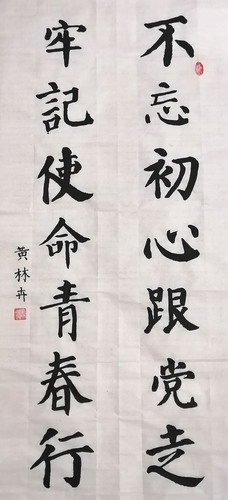 不忘初心跟党走
牢記使命青春行
黄林卉